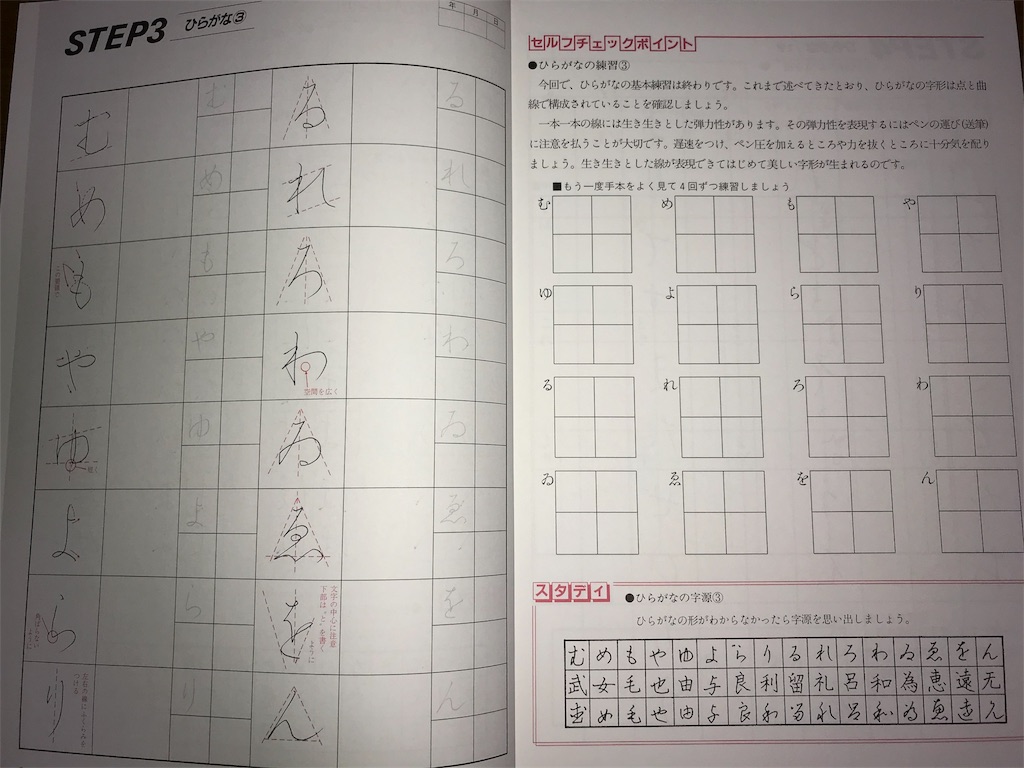 STEP3 ひらがな③
年 月 日
む む る る
め め れ れ
も も ろ ろ
や や わ わ
空間を広く
ゆ ゆ ゐ ゐ
よ よ ゑ ゑ
ら ら を を
文字の中心に注意
下部は、「と」を書く
ように
り り ん ん
左右の線にふくらみを
つける
セルフチェックポイント
●ひらがなの練習③
今回で、ひらがなの基本練習は終わりです。これまで述べてきたとおり、ひらがなの字形は点と曲
線で構成されていることを確認しましょう。
一本一本の線には生き生きとした弾力性があります。その弾力性を表現するにはペンの運び(送筆)
に注意を払うことが大切です。遅速をつけ、ペン圧を加えるところや力を抜くところに十分気を配り
ましょう。生き生きとした線が表現できてはじめて美しい字形が生まれるのです。
■もう一度手本をよく見て4回ずつ練習しましょう
む め も や
ゆ よ ら り
る れ ろ わ
ゐ ゑ を ん
スタディ
●ひらがなの字源③
ひらがなの形がわからなかったら字源を思い出しましょう。
む め も や ゆ よ ら り る れ ろ わ ゐ ゑ を ん
武 女 毛 也 由 与 良 利 留 礼 呂 和 為 恵 遠 无